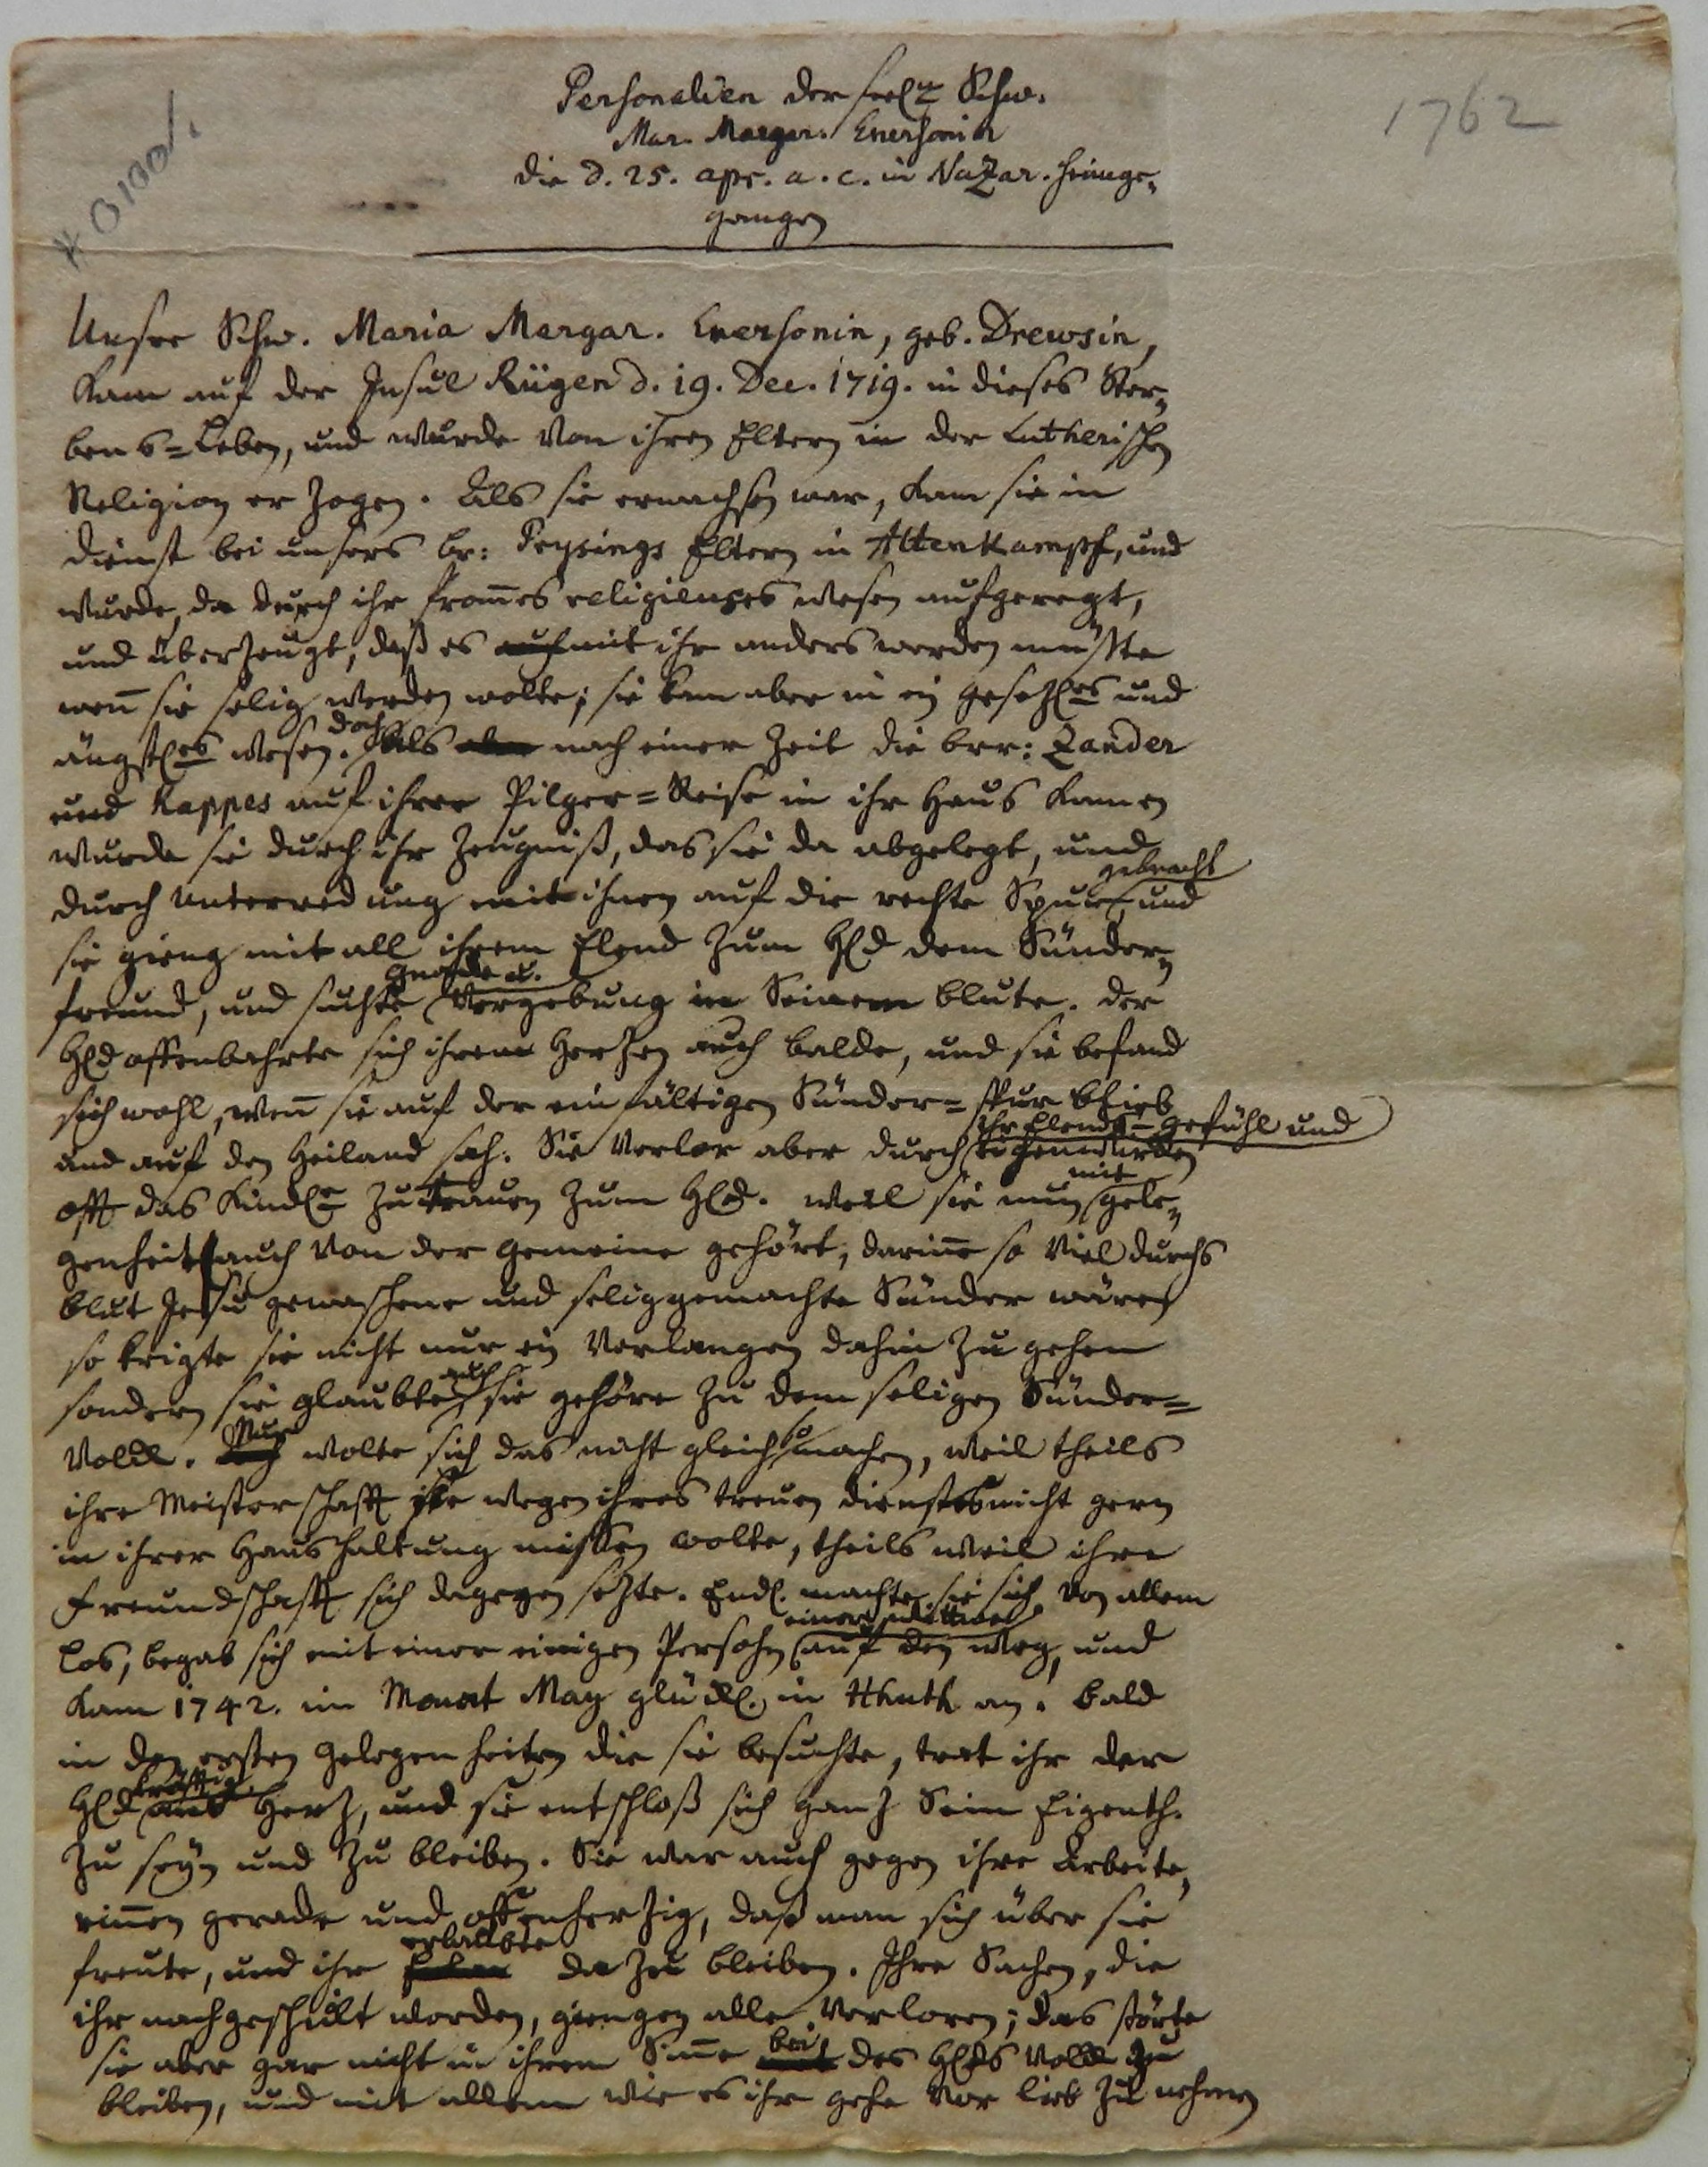 Personalien der seel. Schw.
Mar. Margar. Enersonin
die d. 25. apr. a. c. in Nazar. heimge-
gangen
1762
Unsre Schw. Maria Margar. Enersonin, geb. Drewsin,
kam auf der Insul Rügen d. 19. Dec. 1719. in dieses Ster-
bens-Leben, und wurde von ihren Eltern in der Lutherischen
Religion erzogen. Als sie erwachsen war, kam sie in
Dienst bei unsers br: Peysings Eltern in Altenkampf, und
wurde da durch ihr from̄es religieuses wesen aufgeregt,
und überzeugt, daß es auf mit ihr anders werden müßte
wen̄ sie selig werden wolte; sie kam aber in ein gesezl.es und
ängstl.es wesen. doch Als aber nach einer Zeit die brr: Zander
und Kappes auf ihrer Pilger-Reise in ihr Haus kamen
wurde sie durch ihr Zeugniß, das sie da abgelegt, und
durch unterredung mit ihnen auf die rechte Spur gebracht, und
sie gieng mit all ihrem Elend zum Hld dem Sünder-
freund, und suchte Gnade u. Vergebung in Seinem blute. der
Hld offenbahrte sich ihrem Herzen auch balde, und sie befand
sich wohl, wen̄ sie auf der einfältigen Sünder-spur blieb
und auf den Heiland sah. Sie verlor aber durch ihr Elends-gefühl und eigenwirken
offt das kindl.e zutrauen zum Hld. weil sie nun mit gele-
genheit auch von der Gemeine gehört, darin̄e so viel durchs
blut Jesu gewaschene und seliggemachte Sünder wären
so krigte sie nicht nur ein Verlangen dahin zu gehen
sondern sie glaubte auch sie gehöre zu dem seligen Sünder-
volck. Nur wolte sich das nicht gleich so machen, weil theils
ihre Meisterschafft sie wegen ihres treuen dienstes nicht gern
in ihrer Haushaltung missen wolte, theils weil ihre
Freundschafft sich dagegen sezte. Endl. machte sie sich von allem
los, begab sich mit einer einigen Persohn einer Wittwe auf den weg, und
kam 1742. im Monat May glückl. in Hhuth an. bald
in den ersten gelegenheiten die sie besuchte, trat ihr der
Hld kräfftig ans Herz, und sie entschloß sich ganz Sein Eigenth.
zu seyn und zu bleiben. Sie war auch gegen ihre Arbeite-
rin̄en gerade und offenherzig, daß man sich über sie
freute, und ihr erlaubte da zu bleiben. Ihre Sachen, die
ihr nachgeschickt worden, giengen alle verloren; das störte
sie aber gar nicht in ihrem Sin̄e bei des Hlds volck zu
bleiben, und mit allem wie es ihr gehe vor lieb zu nehmen